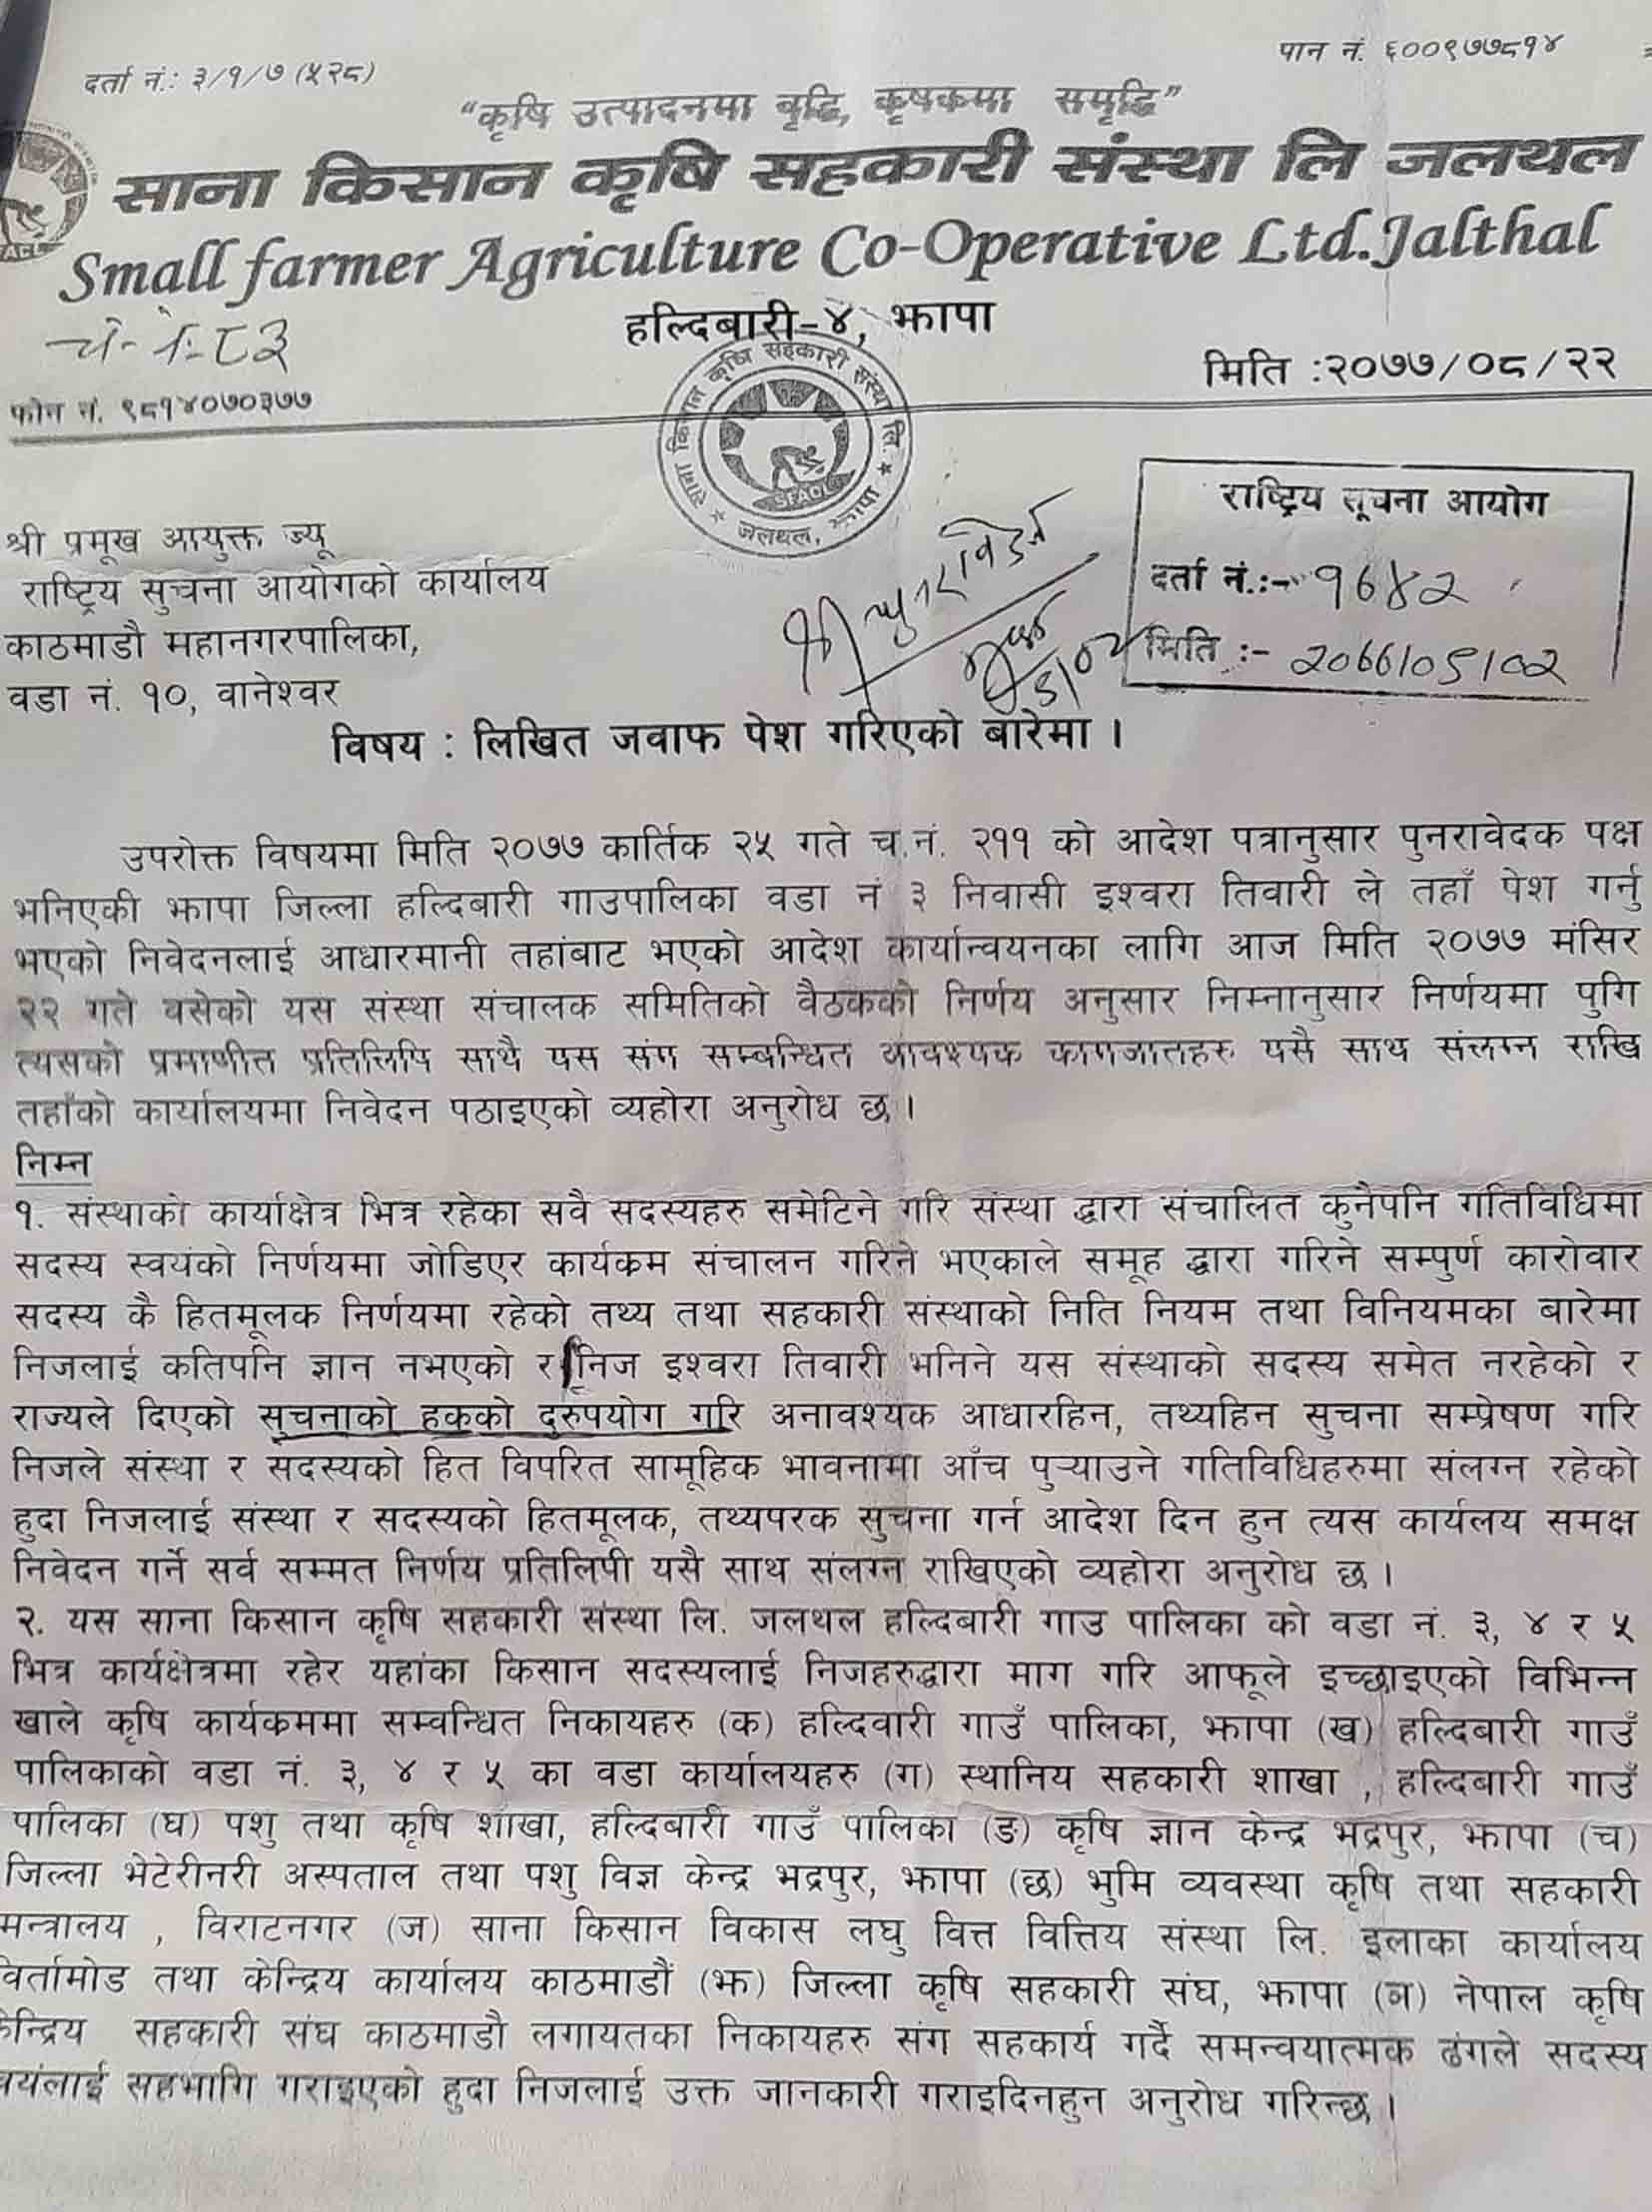 दर्ता नं.: ३/१/७ (५२८)
पान नं. ६००९७७८१४
“कृषि उत्पादनमा बृद्धि, कृषकमा समृद्धि”
साना किसान कृषि सहकारी संस्था लि जलथल
Small farmer Agriculture Co-Operative Ltd.Jalthal
हल्दिबारी-४, झापा
च. नं. ८३
मिति :२०७७/०८/२२
फोन नं. ९८१४०७०३७७
साना किसान कृषि सहकारी संस्था लि.
SFACL
जलथल, झापा
राष्ट्रिय सूचना आयोग
दर्ता नं.:-
मिति :- २०७७/०९/०२
श्री प्रमूख आयुक्त ज्यू
राष्ट्रिय सुचना आयोगको कार्यालय
काठमाडौ महानगरपालिका,
वडा नं. १०, वानेश्वर
विषय : लिखित जवाफ पेश गरिएको बारेमा ।
उपरोक्त विषयमा मिति २०७७ कार्तिक २५ गते च.नं. २११ को आदेश पत्रानुसार पुनरावेदक पक्ष
भनिएकी झापा जिल्ला हल्दिबारी गाउपालिका वडा नं ३ निवासी इश्वरा तिवारी ले तहाँ पेश गर्नु
भएको निवेदनलाई आधारमानी तहांबाट भएको आदेश कार्यान्वयनका लागि आज मिति २०७७ मंसिर
२२ गते वसेको यस संस्था संचालक समितिको वैठकको निर्णय अनुसार निम्नानुसार निर्णयमा पुगि
त्यसको प्रमाणीत प्रतिलिपि साथै यस संग सम्बन्धित आवश्यक कागजातहरु यसै साथ संलग्न राखि
तहाँको कार्यालयमा निवेदन पठाइएको व्यहोरा अनुरोध छ ।
निम्न
१. संस्थाको कार्याक्षेत्र भित्र रहेका सवै सदस्यहरु समेटिने गरि संस्था द्वारा संचालित कुनैपनि गतिविधिमा
सदस्य स्वयंको निर्णयमा जोडिएर कार्यक्रम संचालन गरिने भएकाले समूह द्वारा गरिने सम्पुर्ण कारोवार
सदस्य कै हितमूलक निर्णयमा रहेको तथ्य तथा सहकारी संस्थाको निति नियम तथा विनियमका बारेमा
निजलाई कतिपनि ज्ञान नभएको र निज इश्वरा तिवारी भनिने यस संस्थाको सदस्य समेत नरहेको र
राज्यले दिएको सुचनाको हकको दुरुपयोग गरि अनावश्यक आधारहिन, तथ्यहिन सुचना सम्प्रेषण गरि
निजले संस्था र सदस्यको हित विपरित सामूहिक भावनामा आँच पुऱ्याउने गतिविधिहरुमा संलग्न रहेको
हुदा निजलाई संस्था र सदस्यको हितमूलक, तथ्यपरक सुचना गर्न आदेश दिन हुन त्यस कार्यलय समक्ष
निवेदन गर्ने सर्व सम्मत निर्णय प्रतिलिपी यसै साथ संलग्न राखिएको व्यहोरा अनुरोध छ ।
२. यस साना किसान कृषि सहकारी संस्था लि. जलथल हल्दिबारी गाउ पालिका को वडा नं. ३, ४ र ५
भित्र कार्यक्षेत्रमा रहेर यहांका किसान सदस्यलाई निजहरुद्वारा माग गरि आफूले इच्छाइएको विभिन्न
खाले कृषि कार्यकममा सम्वन्धित निकायहरु (क) हल्दिवारी गाउँ पालिका, झापा (ख) हल्दिबारी गाउँ
पालिकाको वडा नं. ३, ४ र ५ का वडा कार्यालयहरु (ग) स्थानिय सहकारी शाखा , हल्दिबारी गाउँ
पालिका (घ) पशु तथा कृषि शाखा, हल्दिबारी गाउँ पालिका (ङ) कृषि ज्ञान केन्द्र भद्रपुर, झापा (च)
जिल्ला भेटेरीनरी अस्पताल तथा पशु विज्ञ केन्द्र भद्रपुर, झापा (छ) भुमि व्यवस्था कृषि तथा सहकारी
मन्त्रालय , विराटनगर (ज) साना किसान विकास लघु वित्त वित्तिय संस्था लि. इलाका कार्यालय
विर्तामोड तथा केन्द्रिय कार्यालय काठमाडौं (झ) जिल्ला कृषि सहकारी संघ, झापा (ञ) नेपाल कृषि
केन्द्रिय सहकारी संघ काठमाडौ लगायतका निकायहरु संग सहकार्य गर्दै समन्वयात्मक ढंगले सदस्य
सहभागि गराइएको हुदा निजलाई उक्त जानकारी गराइदिनहुन अनुरोध गरिन्छ ।